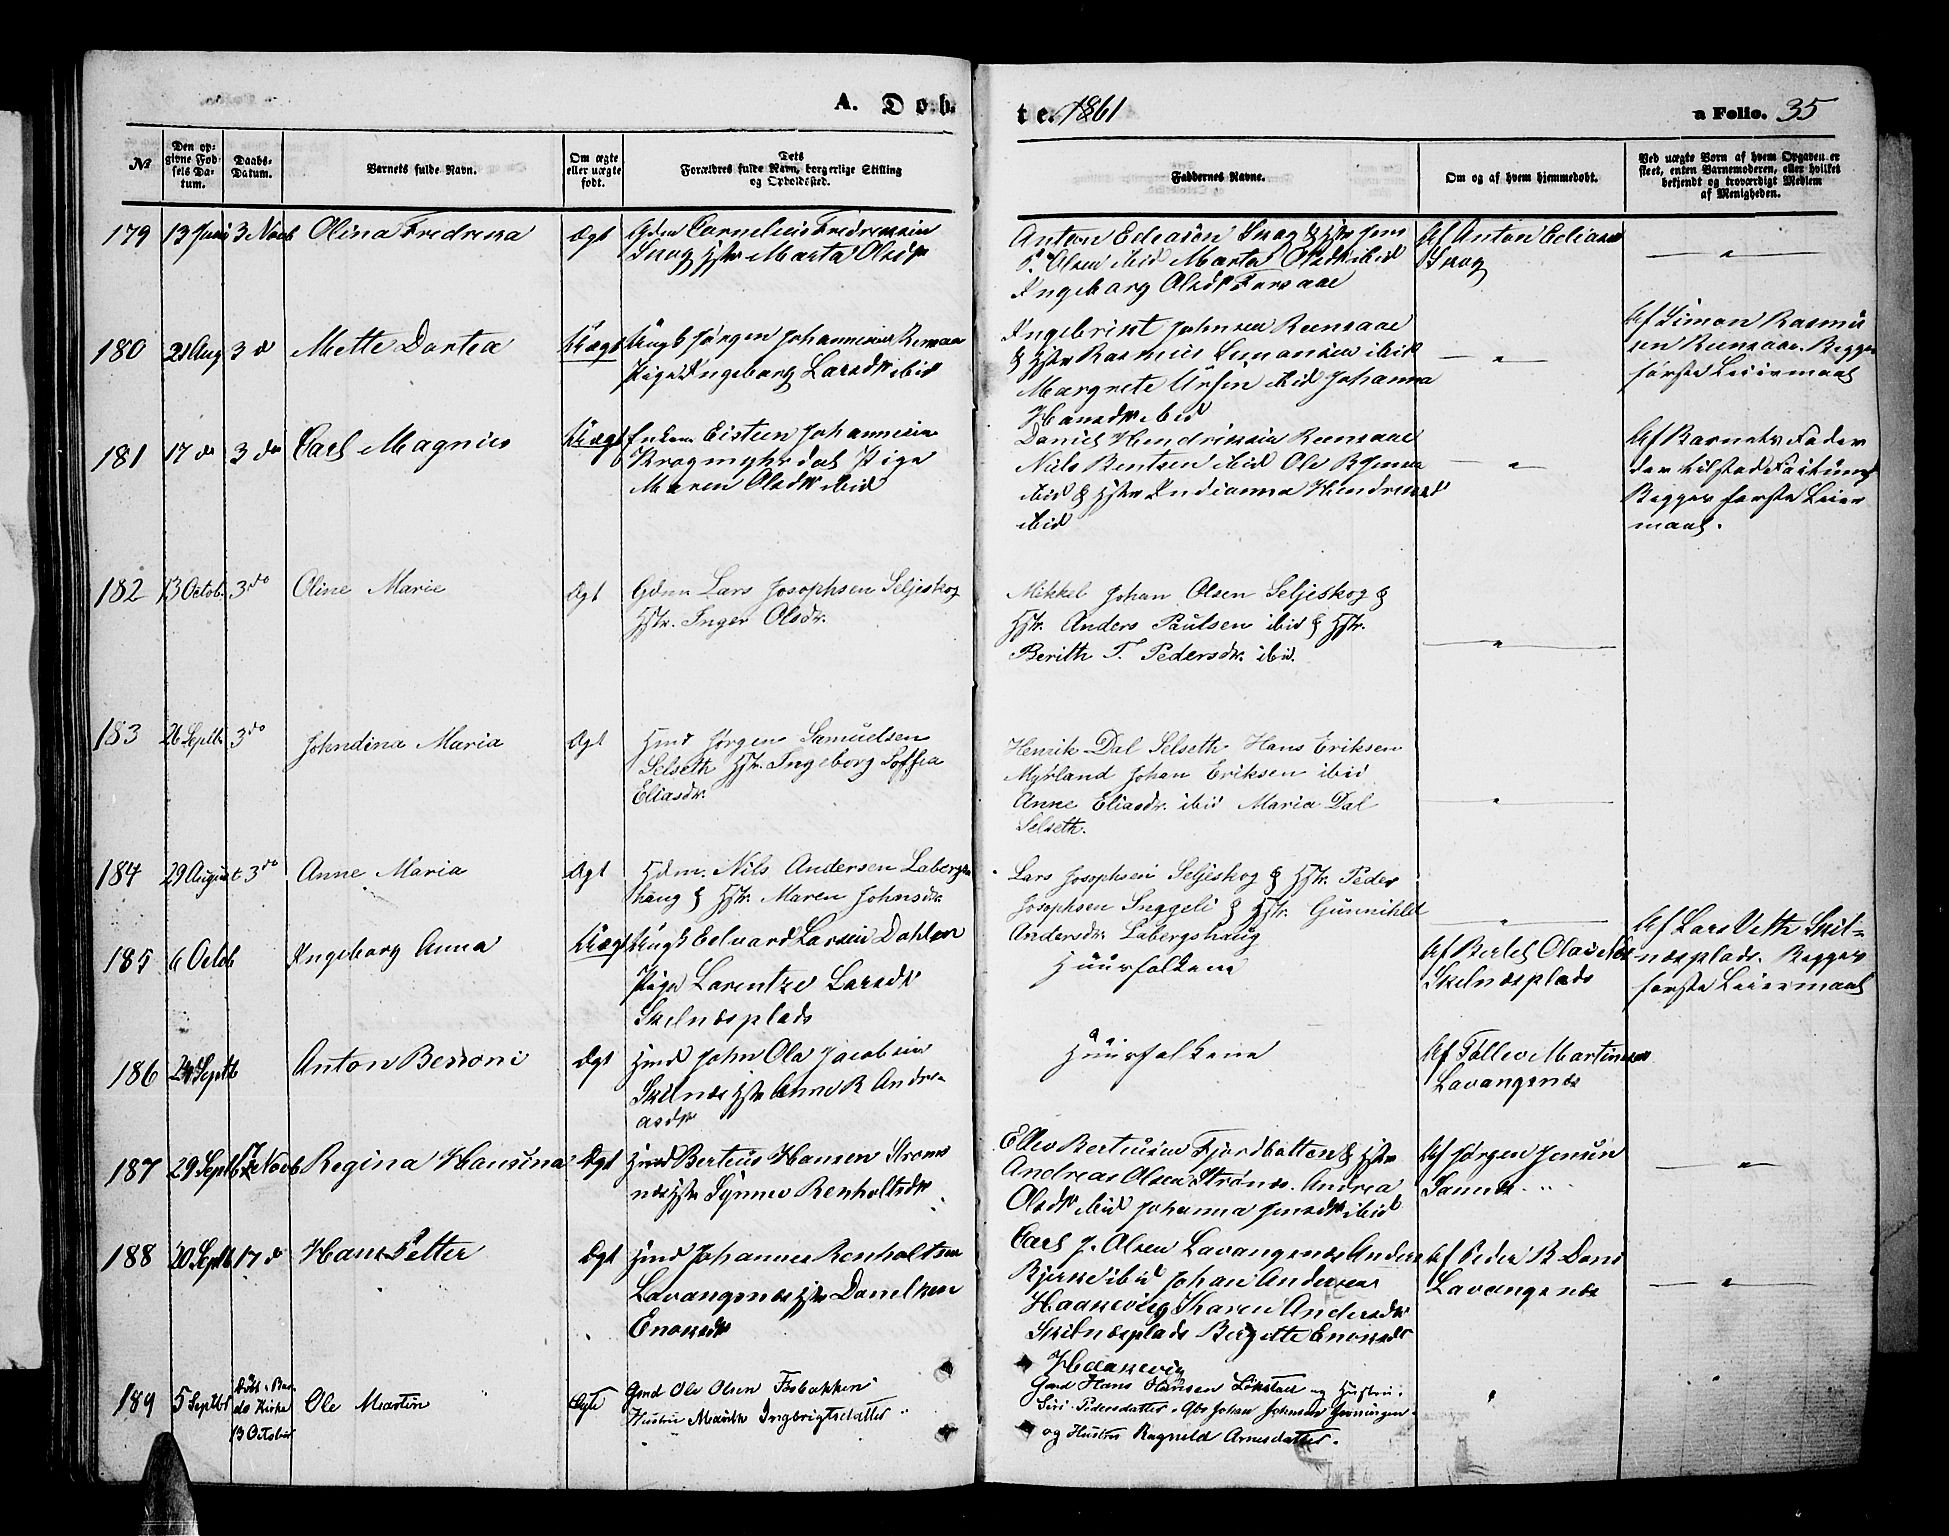 A. Døb
te. 1861
a Folio. 35
No
Den opgivne Fødsels Datum.
Daabs-Datum.
Barnets fulde Navn.
Om ægte eller uægte født.
Dets Forældres fulde Navn, borgerlige Stilling og Opholdssted.
Faddernes Navne.
Om og af hvem hjemmedøbt.
Ved uægte Børn af hvem Opgaven er skeet, enten Barnemoderen, eller hvilket bekjendt og troværdigt Medlem af Menigheden.
179 13 Juni 3 Novb Olina Fredrikka Ægt Gdm Cornelius Fredriksen
Hstr Marta Olsdtr
Anton Eliasen & Hstr Jens
P. Olsen ibid Marta Olsdtr ibid
Ingeborg Olsdtr
Af Anton Eliasen
180 21 Aug 3 d Mette Dortea Uægt Ungk Jørgen Johannesen Rensaa
Pige Ingeborg Larsdtr ibid
Ingebrigt Johnsen Rensaae
& Hstr Rasmus Simonsen ibid
Margrete Ursin ibid Johanna
Hansdtr ibid
Af Simon Rasmussen Rensaae. Begges
første Leiermaal
181 17 do 3 do Carl Magnus Uægt Enkem. Eistein Johannesen
Krogmyhrdal Pige
Maren Olsdtr ibid
Daniel Hendriksen Rensaae
Nils Bentsen ibid Ole
ibid & Hstr Indianna Hendriksdtr
ibid
Af Barnets Fader
der tilstod
Begges første Leiermaal.
182 13 Octob. 3 do Oline Marie Ægt Gdm Lars Josophsen Seljeskog
Hstr. Inger Olsdr.
Mikkel Johan Olsen Seljeskog &
Hstr. Anders Paulsen ibid & Hstr.
Berith T. Pedersdr. ibid.
183 26 Septb 3 do Johndina Maria Ægt Hmd Jørgen Samuelsen
Selseth Hstr. Ingeborg Soffia
Eliasdr.
Henrik Dal Selseth. Hans Eriksen
Myrland Johan Eriksen ibid
Anne Eliasdr. ibid Maria Dal
Selseth.
184 29 August 3 do Anne Maria Ægt Hdm. Nils Andersen Labergs
haug & Hstr. Maren Johnsdr.
Lars Josophsen Seljeskog & Hstr. Peder
Josophsen Snggeli & Hstr. Gunnihld
Andersdr. Labergshaug
185 6 Octob Ingeborg Anna Uægt Ungk Edvard Larsen Dahlen
Pige Lorentze Larsdtr
Skelnæsplads
Huusfolkene
Af Bertel Olai
Skelnæsplads
Af Lars Veth Skelnæsplads. Begges
første Leiermaal
186 24 Septb Anton Bersoni Ægt Hmd John Ola Jacobsen
Skelnæs Hstr Anne B Andreasdtr
Huusfolkene
Af Tollev Martinsen
Lavangsnæs
187 29 Septb 17 Novb Regina Hansina Ægt Hmd Berteus Hansen Strømnæs Hstr Synnev Renholtsdtr
Ellev Berteusen Fjordbotten & Hstr
Andreas Olsen Strønæs. Andrea
Olsdtr ibid Johanna Jensdtr ibid
Af Jørgen Jensen
Sannæs
188 20 Septb 17 d Hans Petter Ægt Hmd Johannes Renholtsen
Lavangsnæs Hstr Danelken
Enoksdtr
Carl J. Olsen Lavangsnæs Anders
Bjerke ibid Johan Andersen
Haakevig Karen Andersdtr
Skelnæsplads Bergette Enoksdtr
Haakevig
Af Peder B Dons
Lavangsnæs
189 5 Septbr Døbt i Bardo Kirke 13 October Ole Martin Ægte Gmd Ole Olsen Fosbakken
Hustru Marith Ingbrigtsdatter
Gmd Hans Hansen Løkstad og Hustru
Siri Pedersdatter. Gbr Johan Johnsen Grønningen
og Hustru Ragnild Arnesdatter.